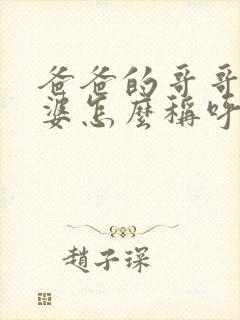 爸爸的哥哥
婆怎麼稱呼
趙子琛